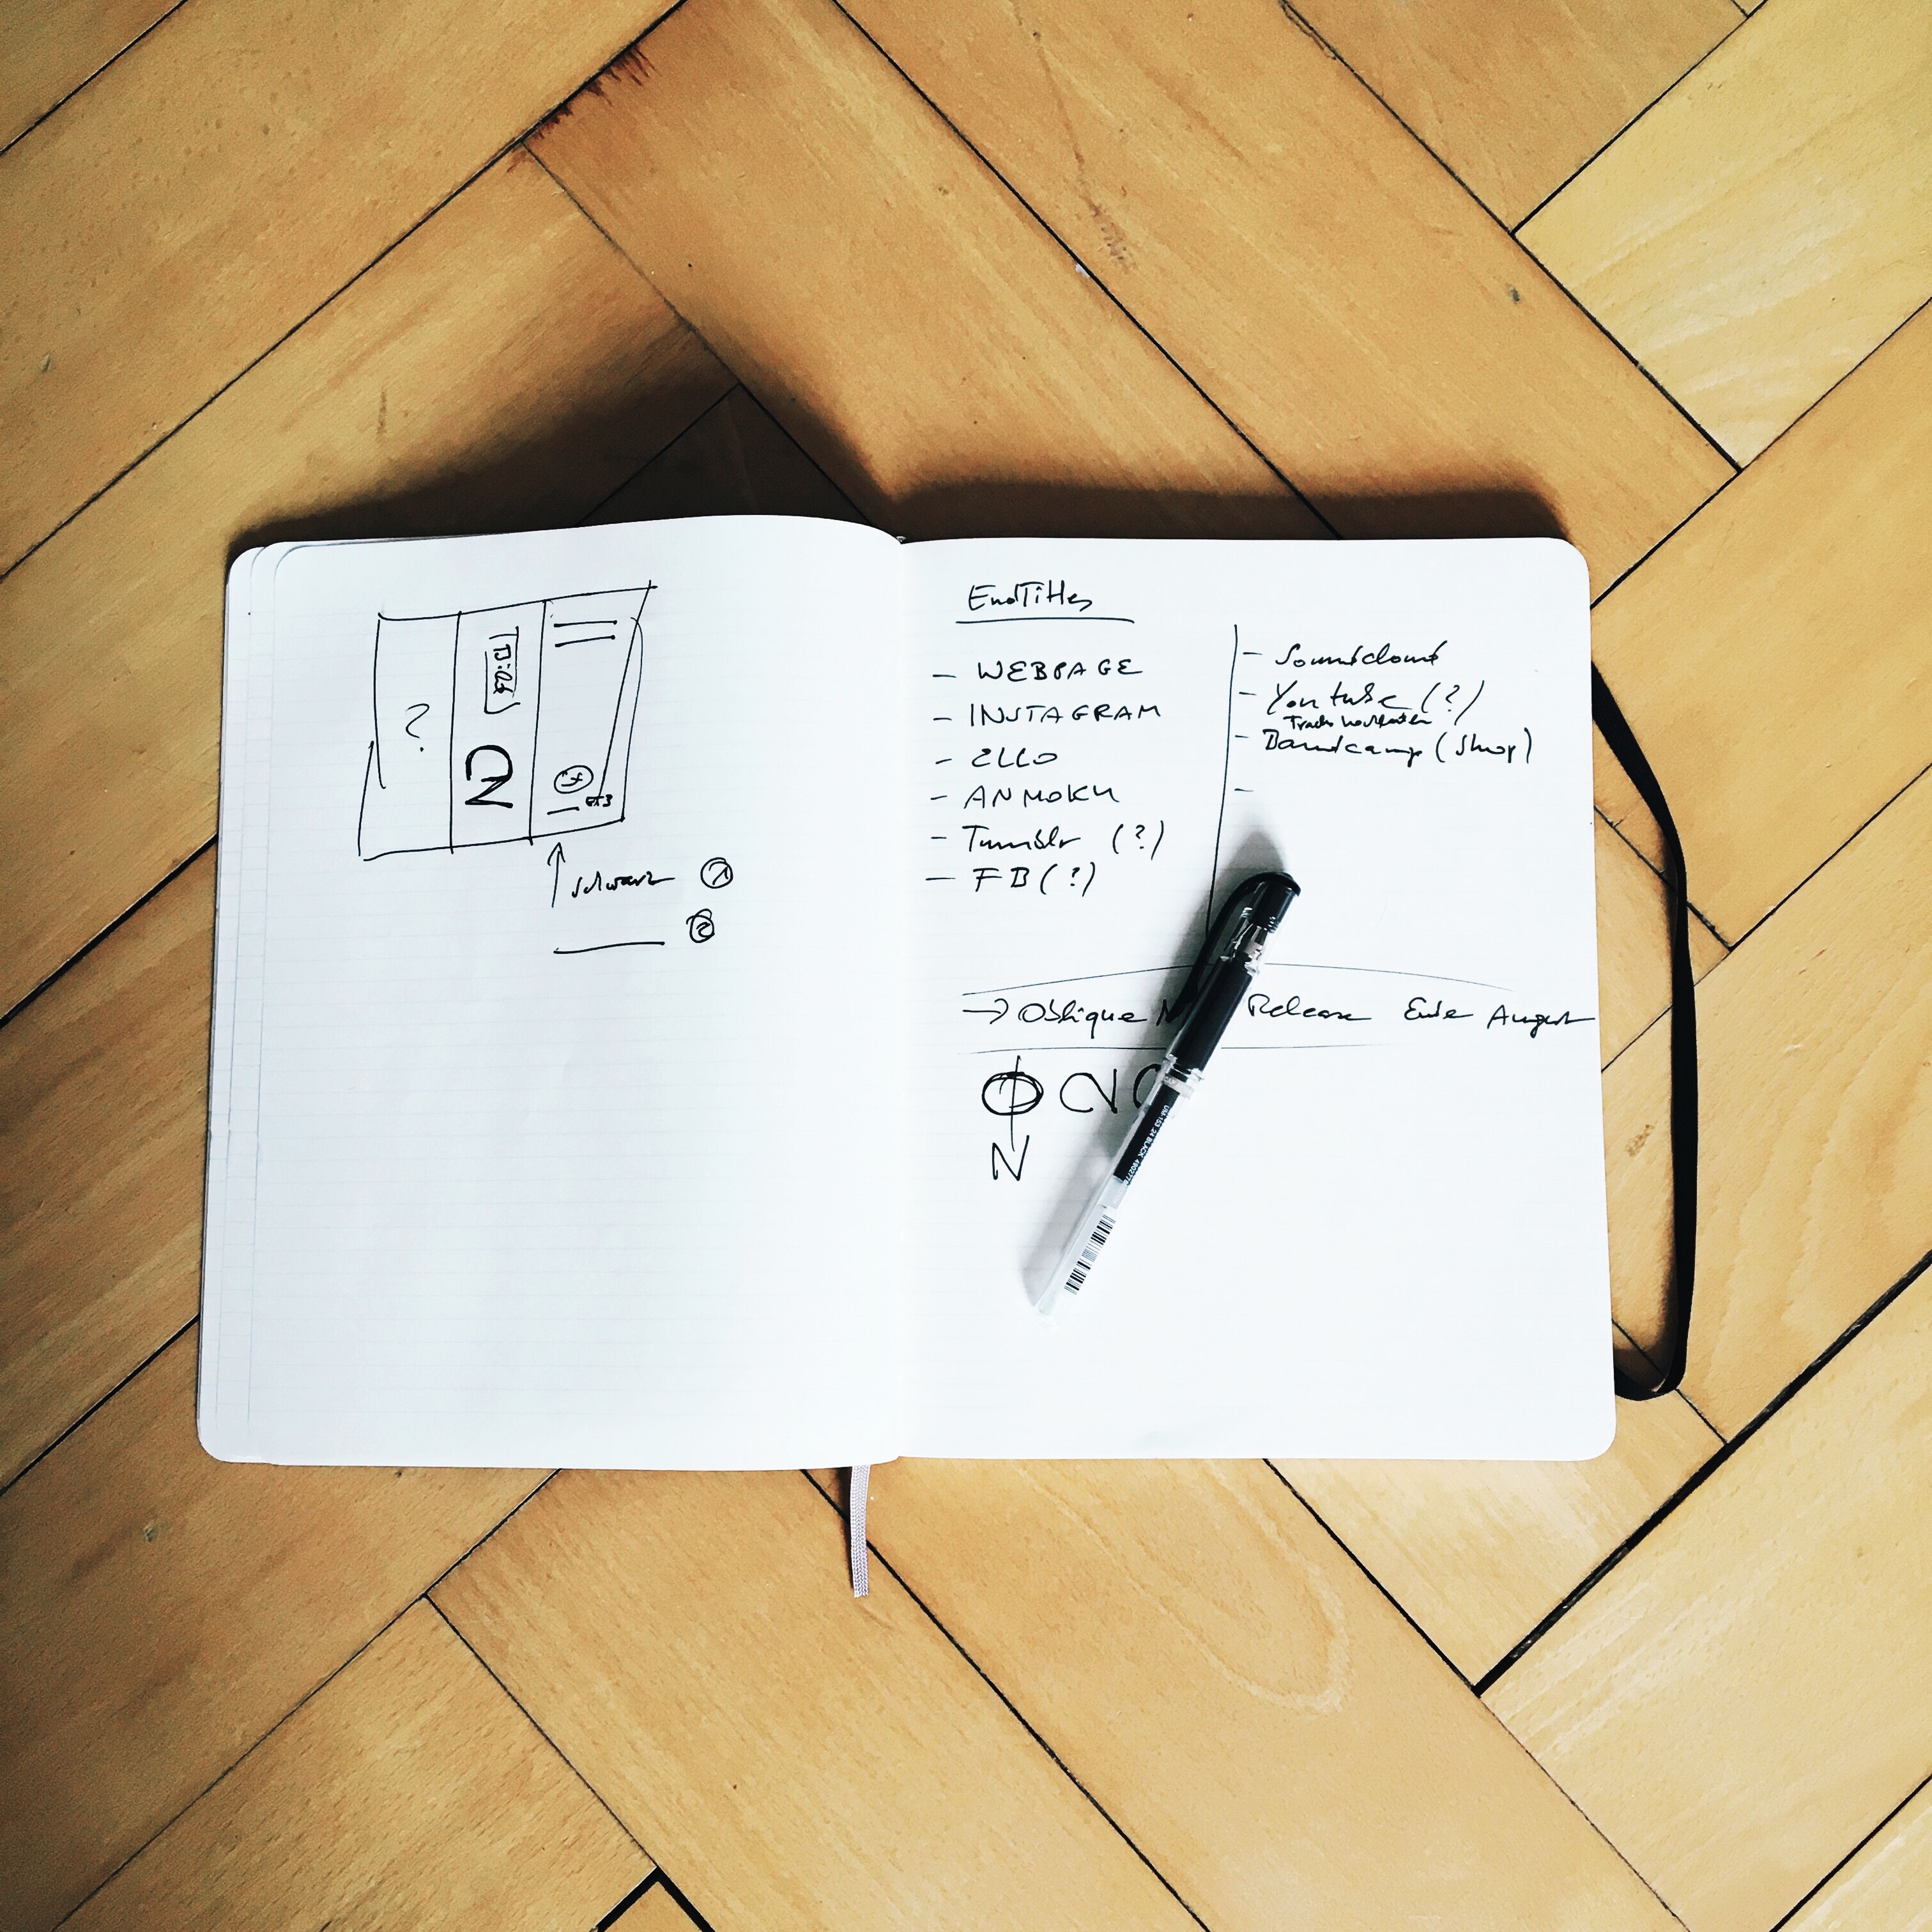 ?
ON
schwarz 1
2
EndTitles
- WEBPAGE
- INSTAGRAM
- ELLO
- ANMOKU
- Tumblr (?)
- FB (?)
- Soundcloud
- Youtube (?)
- Bandcamp (Shop)
-
→ Oblique N Release Ende August
N